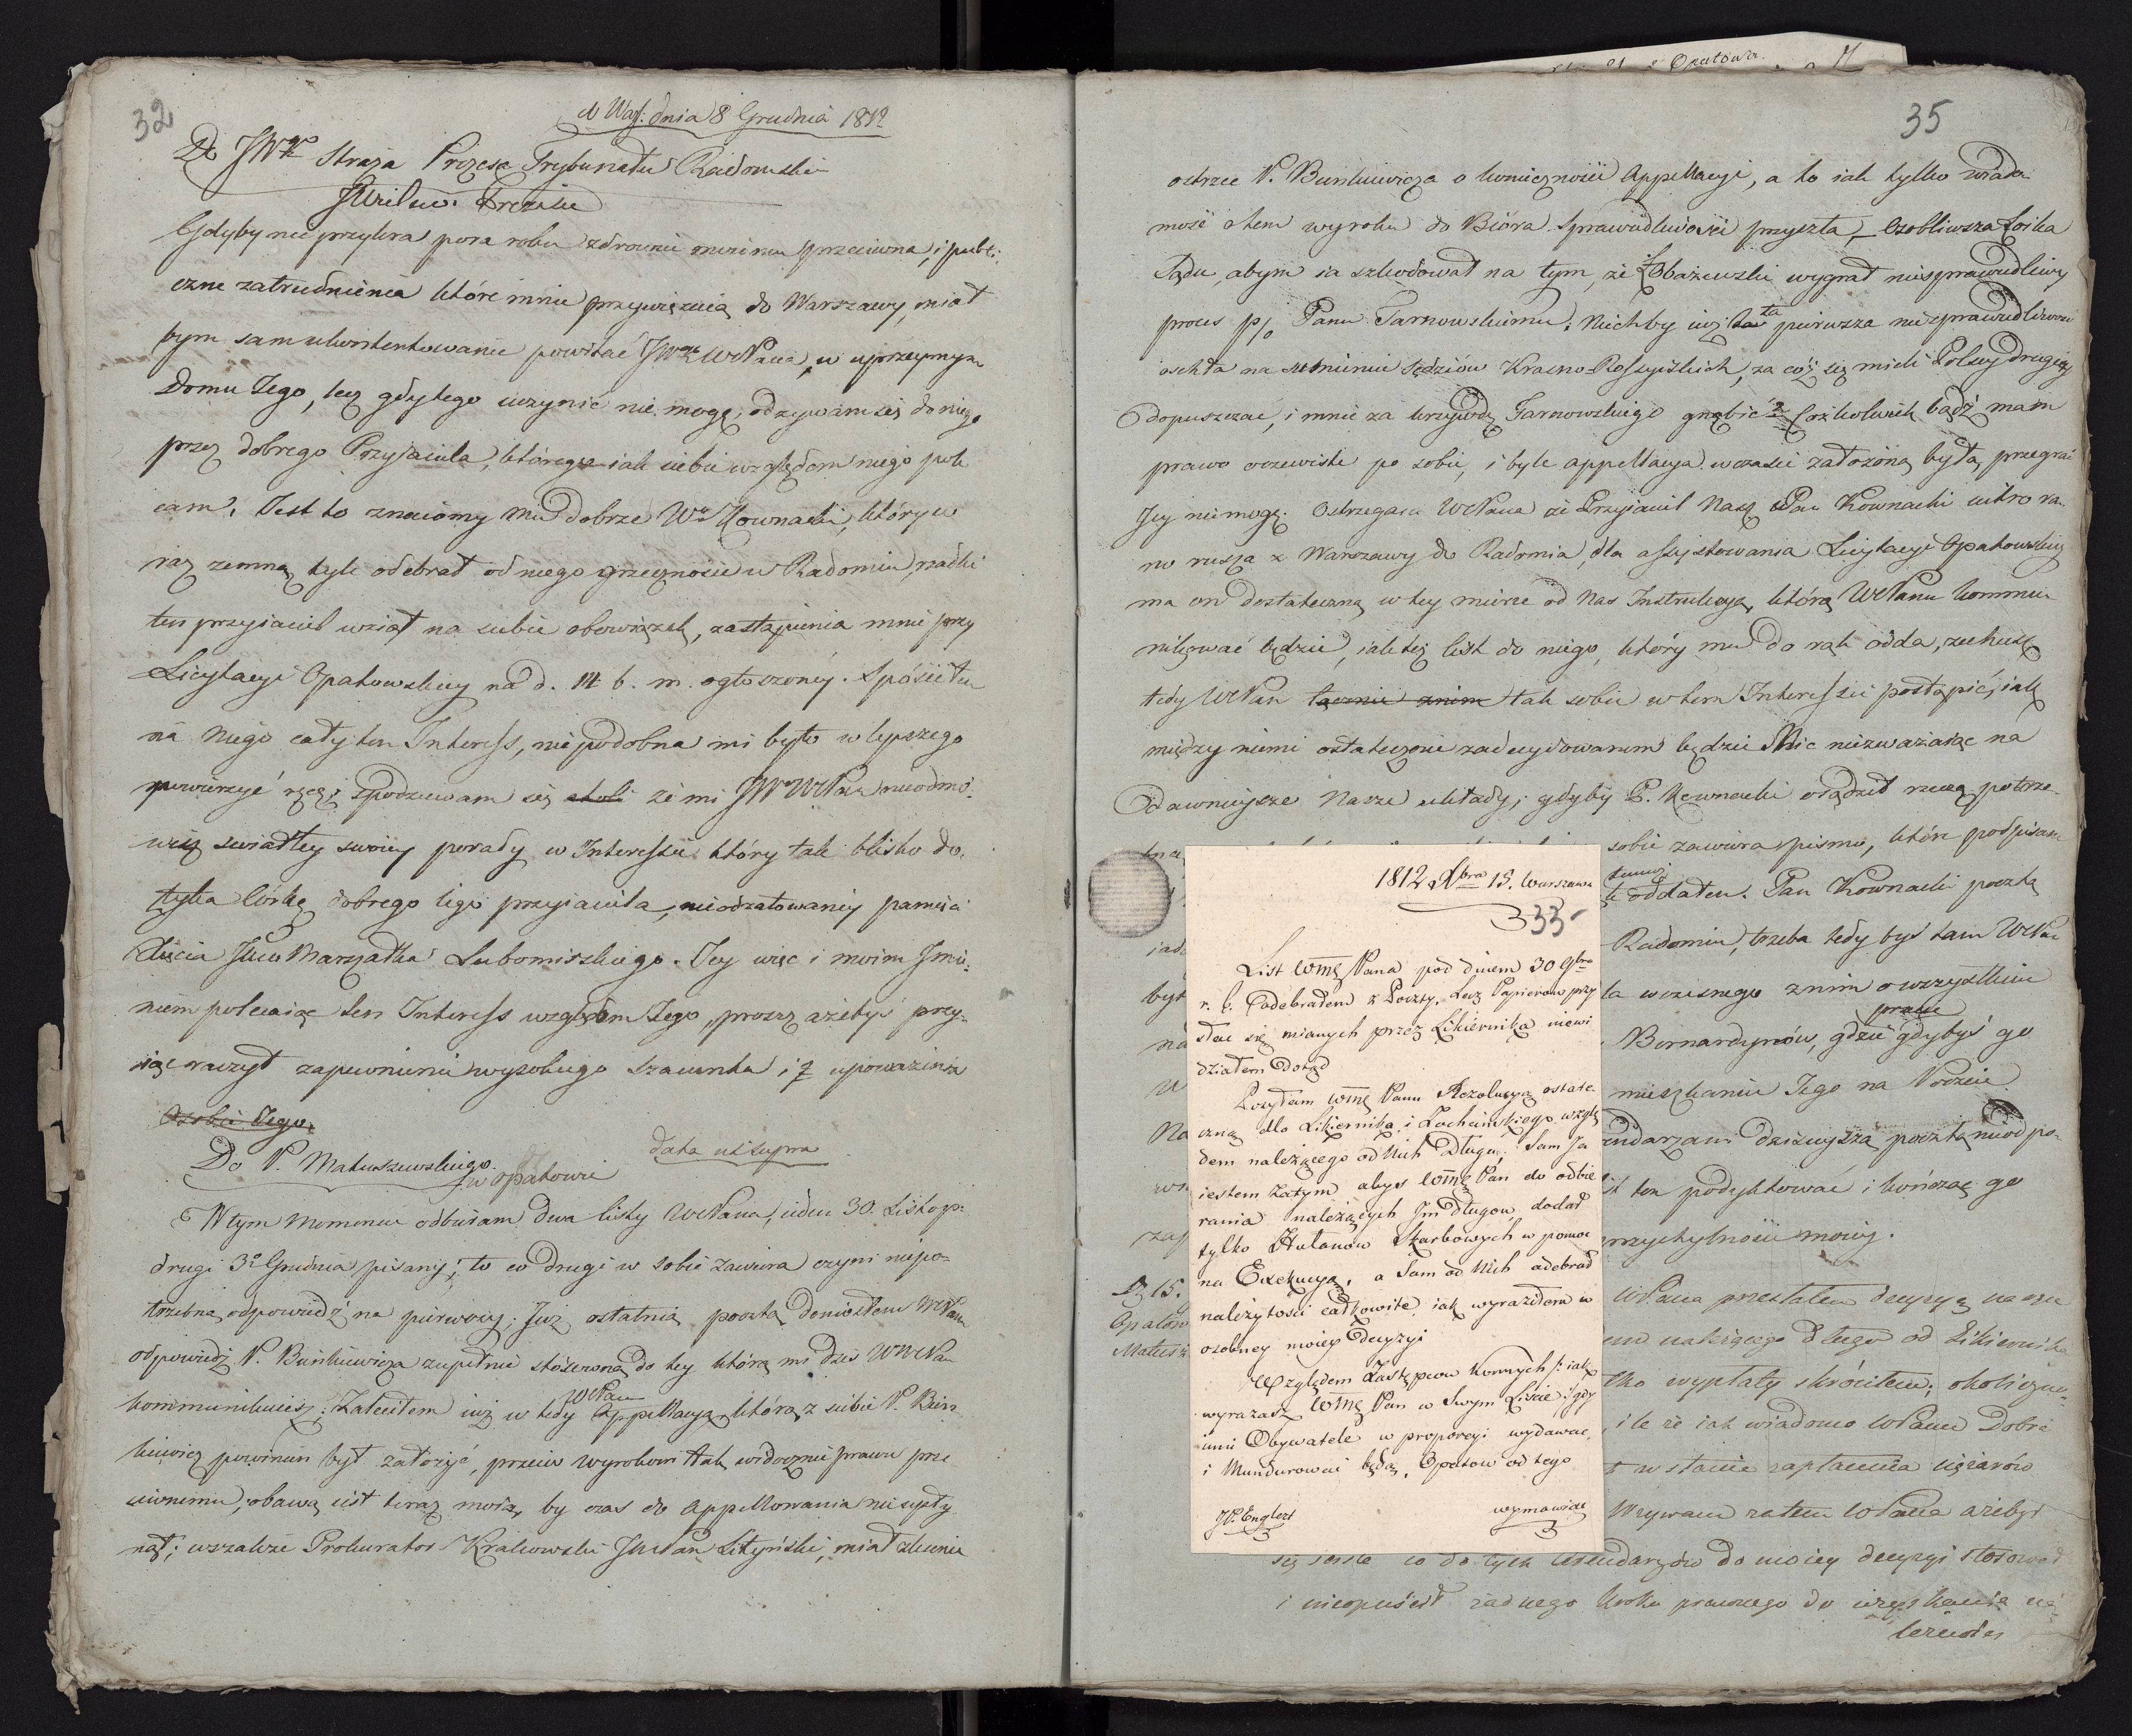 32
d Wars: dnia 8 Grudnia 1812
Do JWgo Straża Prezesa Trybunału Radomskie
Gdyby nie przykra pora roku zdrowiu moiemu przeciwna, i publi-
czne zatrudnienia które mnie przywięzuią do Warszawy, miał
bym sam ukontentowanie powitać JWgo WPana, w uprzeymym
Domu Jego, lecz gdy tego uczynić nie mogę, odzywam się do niego
przez dobrego Przyjaciela, którego iak siebie względom niego pole
cam. Jest to znaiomy mu dobrze Wny Kownacki, który w
raz zemną tyle odebrał od niego grzeczności w Radomiu, rzadki
ten przyjaciel wziął na siebie obowiązek, zastąpienia mnie przy
Licytacyi Opatowskiey na d. 14 b. m. ogłoszoney. Spuściłem
na Niego cały ten Interess, niepodobna mi było w lepszego
powierzyć ręcę; spodziewam się że mi JW WPan nieodmó-
wisz swiatłey swoiey porady w Interessie który tak blisko do-
tyka Córkę dobrego iego przyjaciela, nieodżałowaney pamięci
Xięcia JWo Marszałka Lubomirskiego. Jey więc i moim Jmie-
niem polecaiąc ten Interess względom Jego, proszę ażebyś przy-
iąć raczył zapewnienie wysokiego szacunku i upoważenia
Osobie Jego.
Do P. Matuszewskiego w Opatowie
data ut supra
W tym Momencie odbieram dwa listy WPana, ieden 30. Listop:
drugi 3o Grudnia pisany; to co drugi w sobie zawiera czyni niepo-
trzebną odpowiedź na pierwszy; Już ostatnią pocztą doniosłem WPanu
odpowiedź P. Bieńkiewicza zupełnie stosowną do tey którą mi dziś WWPan
kommunikuiesz; Zaleciłem
WPanu
iuż w tedy Appellacyą którą z siebie P. Bień
kiewicz powinien był założyć, przeciw wyrokowi tak widocznie prawu prze
ciwnemu; obawą iest teraz moią, by czas do Appellowania nie upły
nął; wszakże Prokurator Krakowski JWPan Lityński, miał zlecenie
35
ostrzec P. Bieńkiewicza o konieczności Appellacyi, a to iak tylko wiado
mość o tem wyroku do Bióra Sprawiedliwości przyszła, Osobliwsza Loika
Sądu, abym ia szkodował na tym, że Łobażewski wygrał niesprawiedliwy
proces p/o Panu Tarnowskiemu. Niechby iuż ta pierwsza niesprawiedliwość
osiadła na sumieniu Sędziów Krasno-Rossyiskich, za cóż się mieli Polscy drugiey
dopuszczać, i mnie za krzywdę Tarnowskiego gnębić? Cóżkolwiek bądź mam
prawo oczewiste po sobie, i byle appellacya w czasie założoną była, przegrać
Jey niemogę. Ostrzegam WPana że Przyiaciel Nasz Pan Kownacki iutro ra-
no rusza z Warszawy do Radomia, dla assystowania Licytacyi Opatowskiey
ma on dostateczną w tey mierze od Nas Instrukcyą, którą WPanu kommu
nikować będzie, iak też list do niego, który mu do rąk odda, zechcesz
tedy WPan łącznie znim tak sobie w tem Interessie postąpić, iak
między niemi ostatecznie zadecydowanem będzie Nic niezważaiąc na
dawnieysze Nasze układy; gdyby P. Kownacki osądził rzeczą potrze-
sobie zawiera pismo, które podpisane
oddałem. Pan Kownacki pocztą
Radomiu, trzeba tedy byś tam WPan
wczesnego znim o wszystkim
Bernardynów, gdzie gdybyś go
mieszkanie Jego na Poczcie
dzisieyszą pocztą nieodpo-
list ten podyktować i kończąc go
przychylności moiey.
Dz 15.
Opatow
WPana przesłałem decyzyą wezu
należącego długu od Likiernika
wypłaty skróciłem; okoliczno-
ile że iak wiadomo WPanu Dobra
w stanie zapłacenia ciężarów
Wzywam zatem WPana ażebyś
się co do tych Arendarzów do moiey decyzyi stosował
i nieopuścił żadnego kroku prawnego do uzyskania na-
leżności
1812 Xbra 15. Warszawa
33
List WMę Pana pod dniem 30 9bra
r. b. odebrałem z Poczty, Lecz Papierow przy
słac się mianych przez Likiernika niewi
działem dotąd
Posyłam WMę Panu Rezolucyą ostate
czną dla Likiernika i Zochcińskiego wzglę
dem należącego od Nich Długu; Sam Ja
iestem zatym, abys WMę Pan do odbie
rania należących Jm Długow, dodał
tylko Hułanow Skarbowych w pomoc
na Exekucyą, a Sam od Nich odebrał
należytości całkowite, iak wyraziłem w
osobney moiey Decyzyi
Względem Zastępcow konnych /: iak
wyrażasz WMę Pan w Swym Liscie :/ gdy
inni Obywatele w proporcyi wydawac,
i Mundurować będą, Opatow od tego
JP. Englert
wymawiac